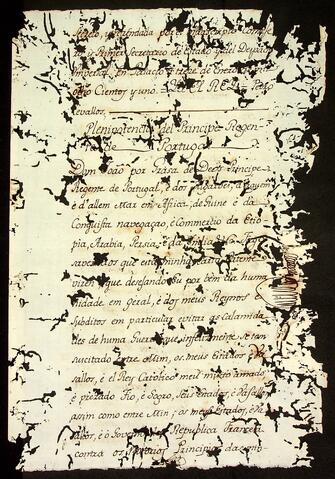 Sello, y refrendada por el
Primer Secretario de Estado y del Despacho
en Palacio à trece de
ocho Cientos y uno. YO EL REY Pedro
Cevallos.
Plenipotencia del Principe Regen-
te de Portugal
Dom João por Graza de Deos Principe
Regente de Portugal, è dos Algarves, d'aquem
è d'allem Mar em Africa, de Guine è da
Conquista navegaçao, è Commercio da Etio-
pia, Arabia, Persia, è da India &.ª Fazo
saber aos que esta minha Carta Patente
virem que desejando Eu por bem da huma-
nidade em geral, è dos meus Reynos è
Subditos em particular evitar as Calamida-
des de huma Guerra que infelizmente se tem
suscitado entre Mim, os meus Estados è Va-
sallos, è el Rey Catòlico meu muito amado
è prezado Tio, è Sogro, seus Estados, è Vasallos
assim como entre Mim, os meus Estados, è Va-
sallos, è o Governo da Republica Francesa
contra os Principios da